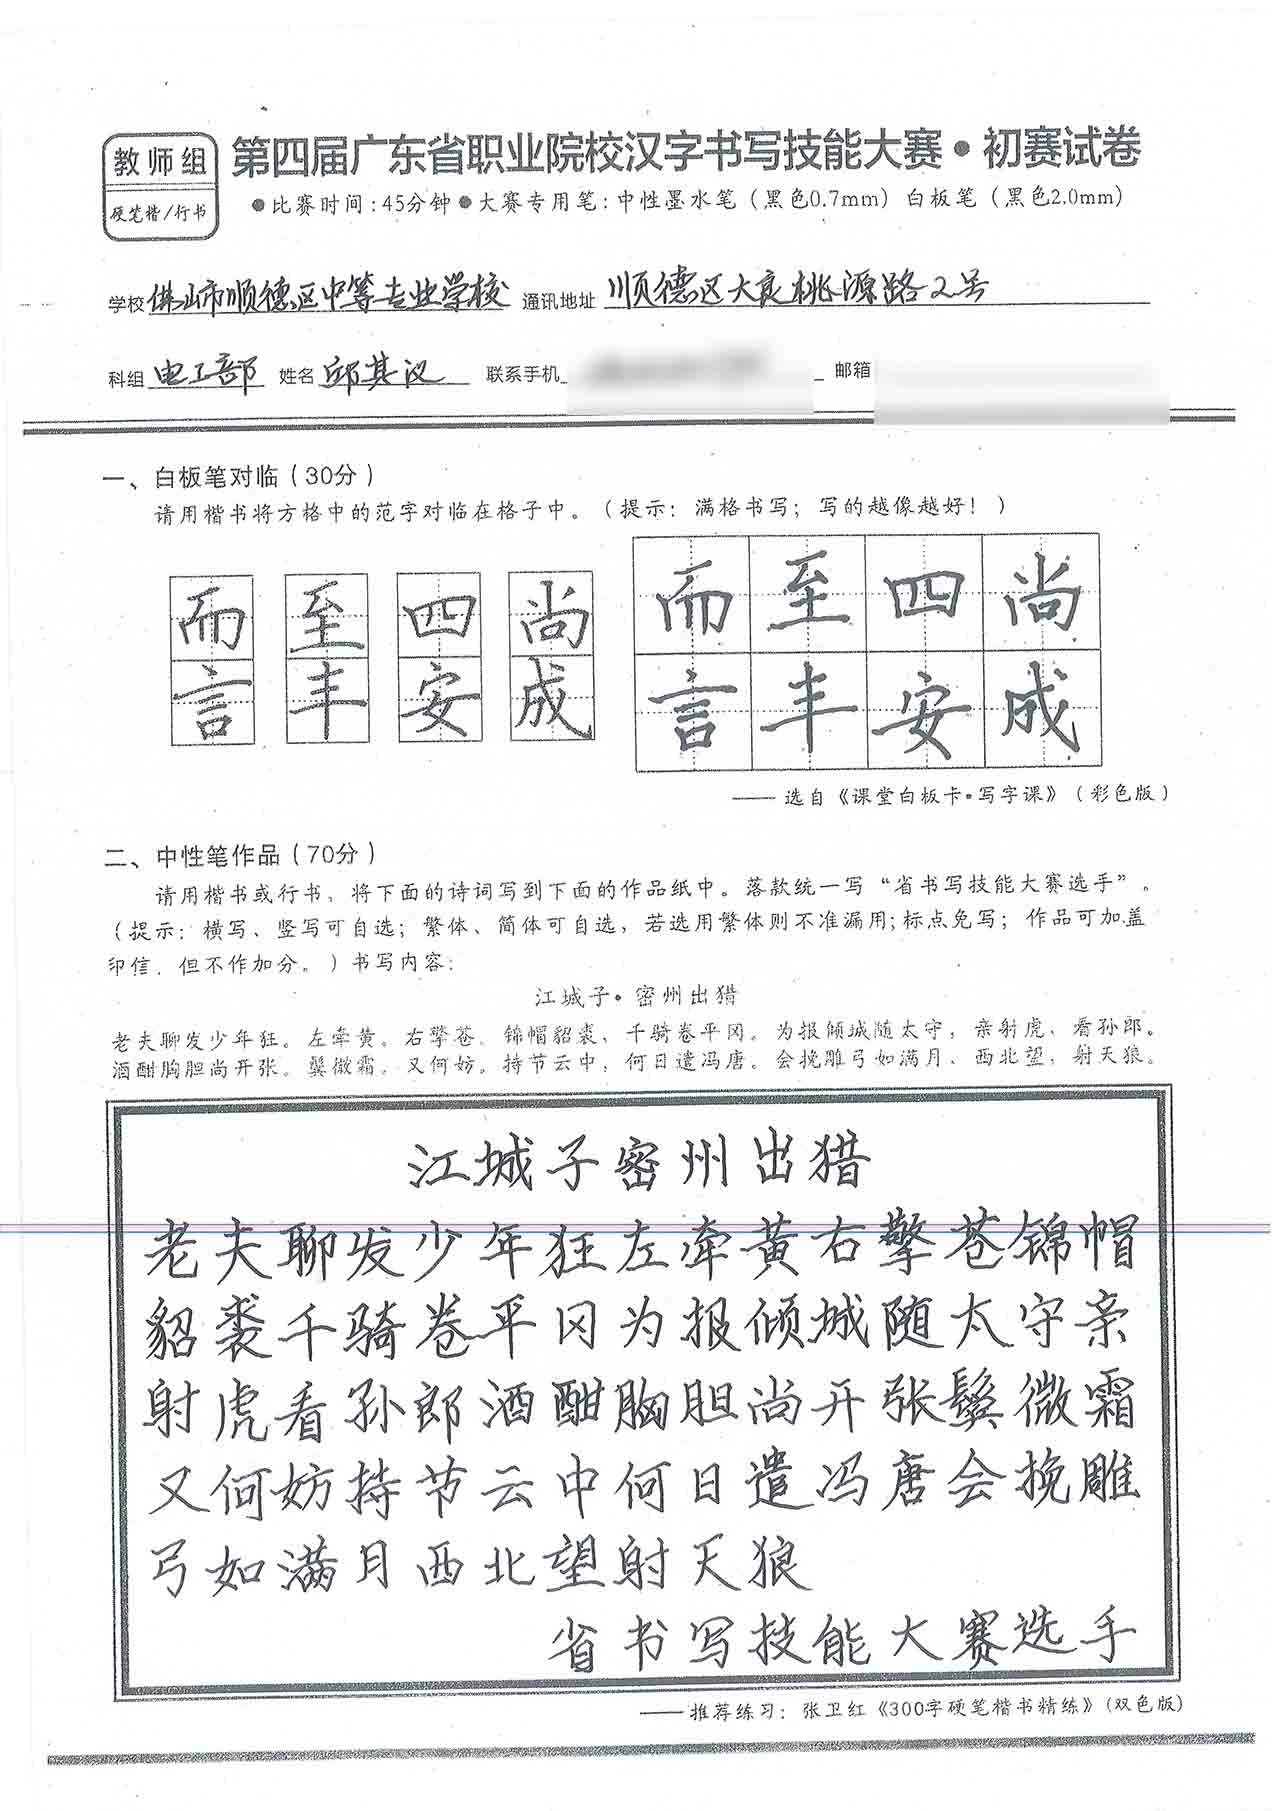 教师组
硬笔楷/行书
第四届广东省职业院校汉字书写技能大赛•初赛试卷
●比赛时间:45分钟●大赛专用笔:中性墨水笔(黑色0.7mm)白板笔(黑色2.0mm)
学校佛山市顺德区中等专业学校 通讯地址 顺德区大良桃源路2号
科组 电工部 姓名 邱其汉 联系手机 邮箱
一、白板笔对临(30分)
请用楷书将方格中的范字对临在格子中。(提示:满格书写;写的越像越好!)
而 至 四 尚 而 至 四 尚
言 丰 安 成 言 丰 安 成
——选自《课堂白板卡•写字课》(彩色版)
二、中性笔作品(70分)
请用楷书或行书,将下面的诗词写到下面的作品纸中。落款统一写“省书写技能大赛选手”。
(提示:横写、竖写可自选;繁体、简体可自选,若选用繁体则不准漏用;标点免写;作品可加盖
印信,但不作加分。)书写内容:
江城子•密州出猎
老夫聊发少年狂。左牵黄。右擎苍。锦帽貂裘,千骑卷平冈。为报倾城随太守,亲射虎,看孙郎。
酒酣胸胆尚开张。鬓微霜。又何妨。持节云中,何日遣冯唐。会挽雕弓如满月、西北望,射天狼。
江城子密州出猎
老夫聊发少年狂左牵黄右擎苍锦帽
貂裘千骑卷平冈为报倾城随太守亲
射虎看孙郎酒酣胸胆尚开张鬓微霜
又何妨持节云中何日遣冯唐会挽雕
弓如满月西北望射天狼
省书写技能大赛选手
——推荐练习:张卫红《300字硬笔楷书精练》(双色版)